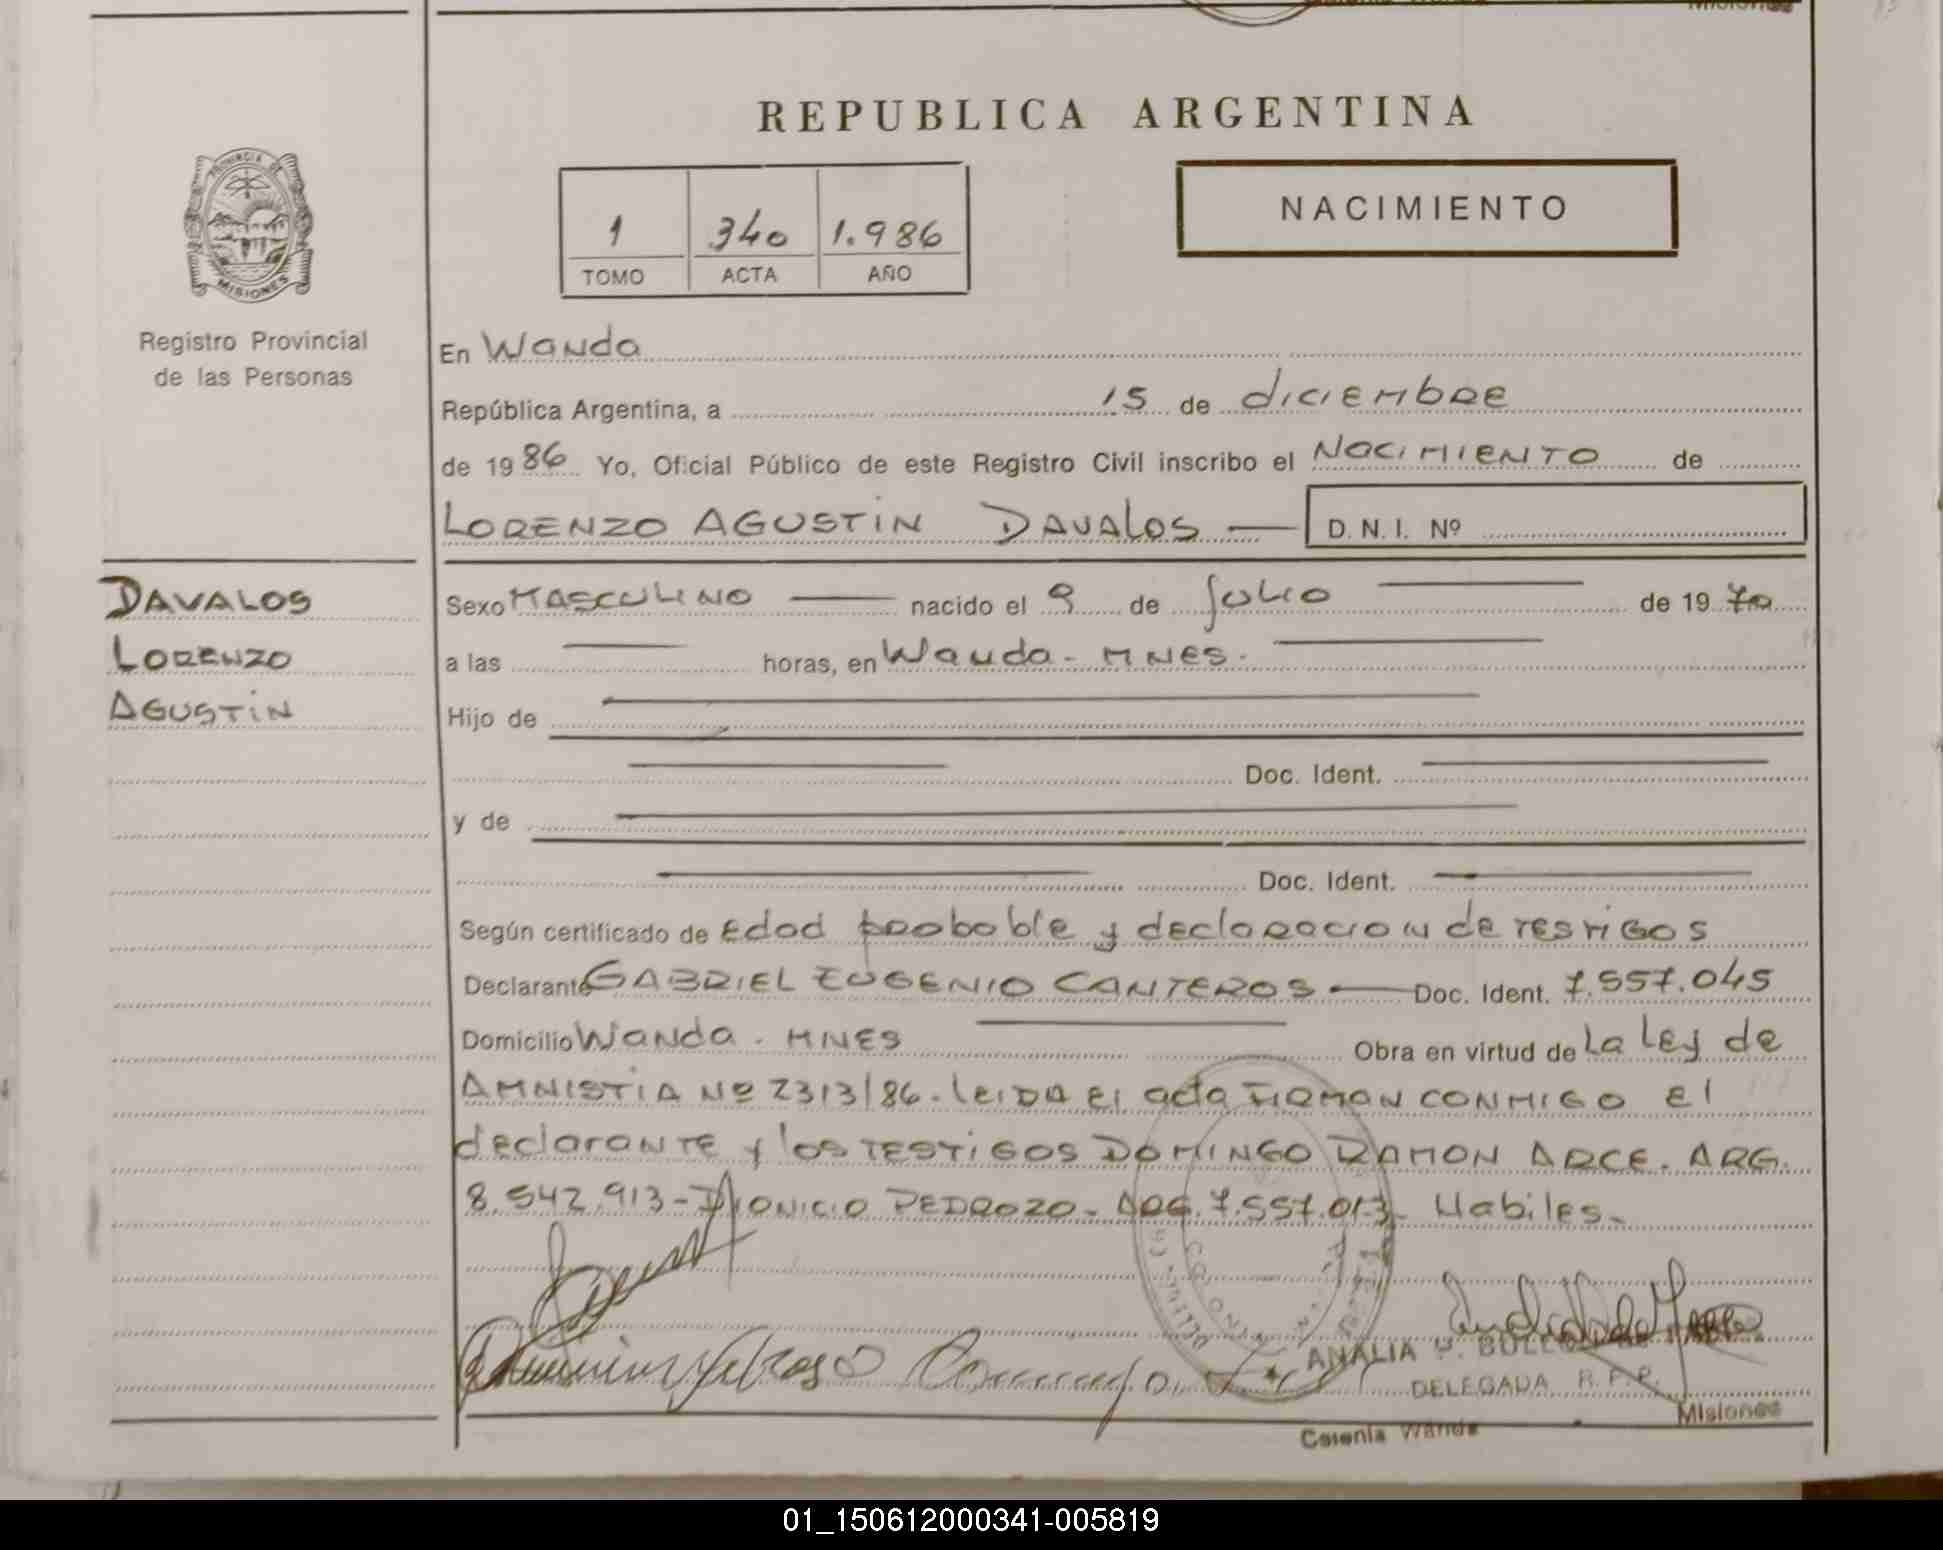 Misiones
REPUBLICA ARGENTINA
PROVINCIA DE
MISIONES
1 340 1.986
TOMO ACTA AÑO
NACIMIENTO
Registro Provincial
de las Personas
En Wanda
República Argentina, a 15 de diciembre
de 1986 Yo, Oficial Público de este Registro Civil inscribo el Nacimiento de
LORENZO AGUSTIN DAVALOS D. N. I. Nº
DAVALOS
LORENZO
AGUSTIN
Sexo MASCULINO nacido el 9 de Julio de 1970
a las horas, en Wanda - MNES.
Hijo de
Doc. Ident.
y de
Doc. Ident.
Según certificado de edad probable y declaracion de testigos
Declarante GABRIEL EUGENIO CANTEROS Doc. Ident. 7.557.045
Domicilio Wanda. MNES Obra en virtud de La Ley de
AMNISTIA Nº 2313/86. leida el acta FIRMAN CONMIGO el
declarante y los TESTIGOS DOMINGO RAMON ARCE. ARG.
8.542.913 - DIONICIO PEDROZO - ARG. 7.557.013. Habiles.
ANALIA
DELEGADA R. P. P.
Misiones
Colonia Wanda
01_150612000341-005819